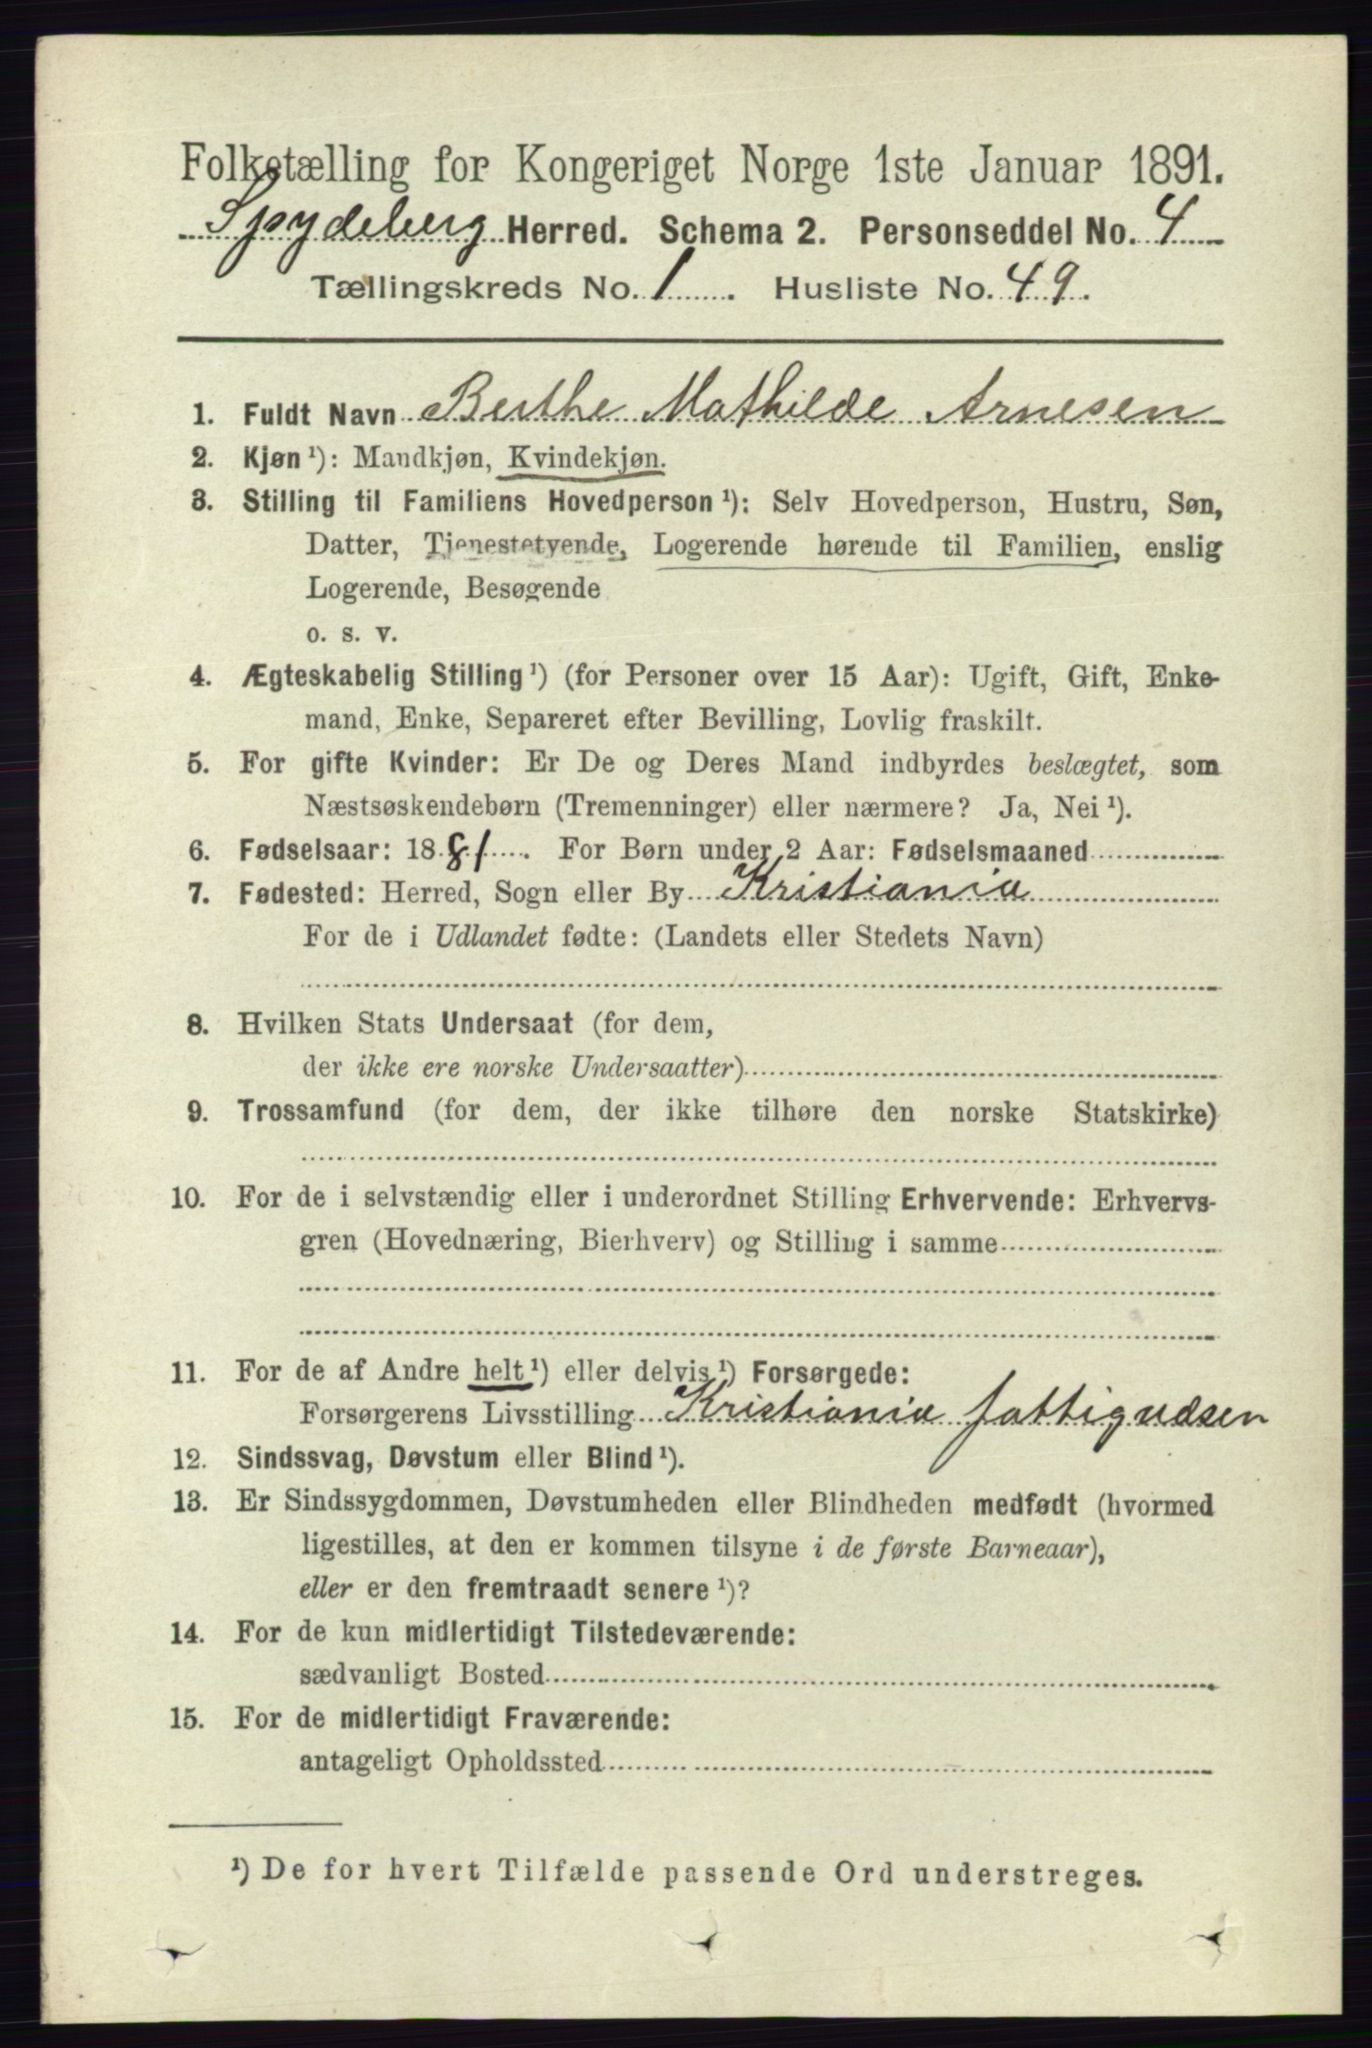 Folketælling for Kongeriget Norge 1ste Januar 1891.
Spydeberg Herred. Schema 2. Personseddel No. 4
Tællingskreds No. 1. Husliste No. 49.
1. Fuldt Navn Berthe Mathilde Arnesen
2. Kjøn¹): Mandkjøn, Kvindekjøn.
3. Stilling til Familiens Hovedperson¹): Selv Hovedperson, Hustru, Søn,
Datter, Tjenestetyende, Logerende hørende til Familien, enslig
Logerende, Besøgende
o. s. v.
4. Ægteskabelig Stilling¹) (for Personer over 15 Aar): Ugift, Gift, Enke-
mand, Enke, Separeret efter Bevilling, Lovlig fraskilt.
5. For gifte Kvinder: Er De og Deres Mand indbyrdes beslægtet, som
Næstsøskendebørn (Tremenninger) eller nærmere? Ja, Nei¹).
6. Fødselsaar: 1881. For Børn under 2 Aar: Fødselsmaaned
7. Fødested: Herred, Sogn eller By Kristiania
For de i Udlandet fødte: (Landets eller Stedets Navn)
8. Hvilken Stats Undersaat (for dem,
der ikke ere norske Undersaatter)
9. Trossamfund (for dem, der ikke tilhøre den norske Statskirke)
10. For de i selvstændig eller i underordnet Stilling Erhvervende: Erhvervs-
gren (Hovednæring, Bierhverv) og Stilling i samme
11. For de af Andre helt¹) eller delvis¹) Forsørgede:
Forsørgerens Livsstilling Kristiania fattigvæsen
12. Sindssvag, Døvstum eller Blind¹).
13. Er Sindssygdommen, Døvstumheden eller Blindheden medfødt (hvormed
ligestilles, at den er kommen tilsyne i de første Barneaar),
eller er den fremtraadt senere¹)?
14. For de kun midlertidigt Tilstedeværende:
sædvanligt Bosted
15. For de midlertidigt Fraværende:
antageligt Opholdssted
¹) De for hvert Tilfælde passende Ord understreges.